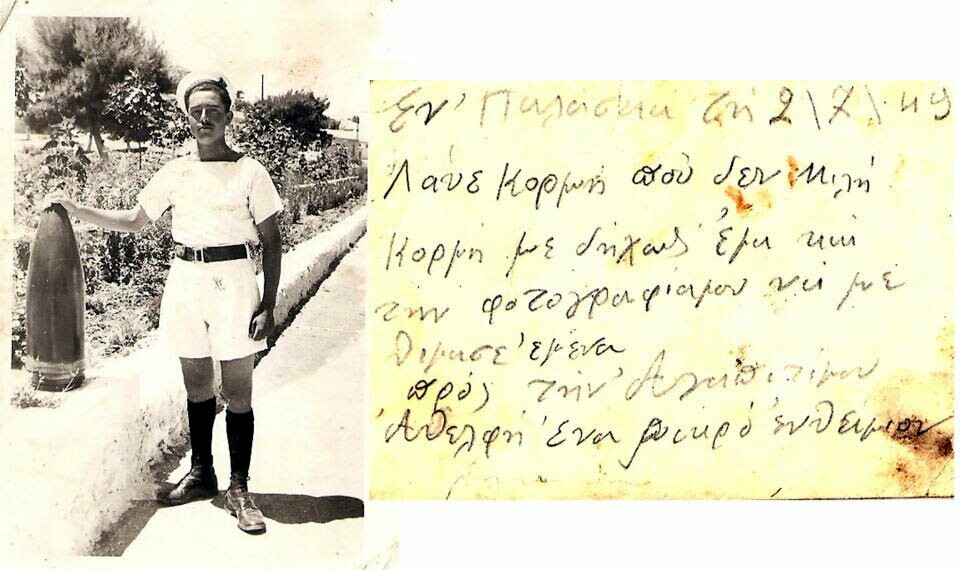 Εν' Παλάσκα τη 2\7\49
Λάβε κορμή που δεν μιλή
κορμή με δήχως έμα και
την φοτογραφίαμου να με
θιμασε εμένα
πρός την Αγαπιτίμου
Αθελφή ένα μικρό ενθείμιον